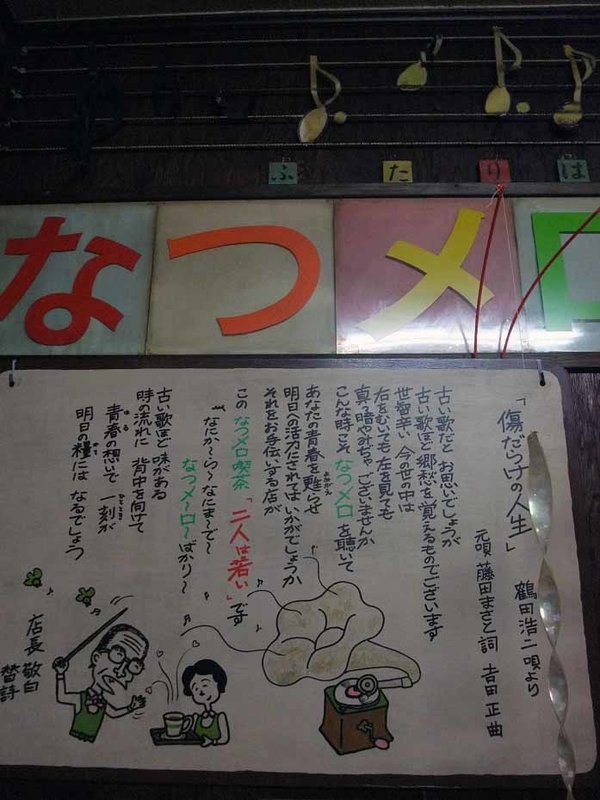 ふたりは
なつメロ
「傷だらけの人生」
鶴田浩二唄より
元唄 藤田まさと詞 吉田正曲
古い歌だとお思いでしょうが
古い歌ほど郷愁を覚えるものでございます
世智辛い今の世の中は
右をむいても左を見ても
真っ暗やみちゃございませんか
こんな時こそなつメロを聴いて
あなたの青春を甦らせ
明日への活力にされてはいかがでしょうか
それをお手伝いする店が
このなつメロ喫茶「二人は若い」です
なにか〜ら〜なにま〜で〜
なつメ〜ロ〜ばかり〜
古い歌ほど味がある
時の流れに背中を向けて
青春の想いで一刻が
明日の糧には なるでしょう
店長 敬白
替詩